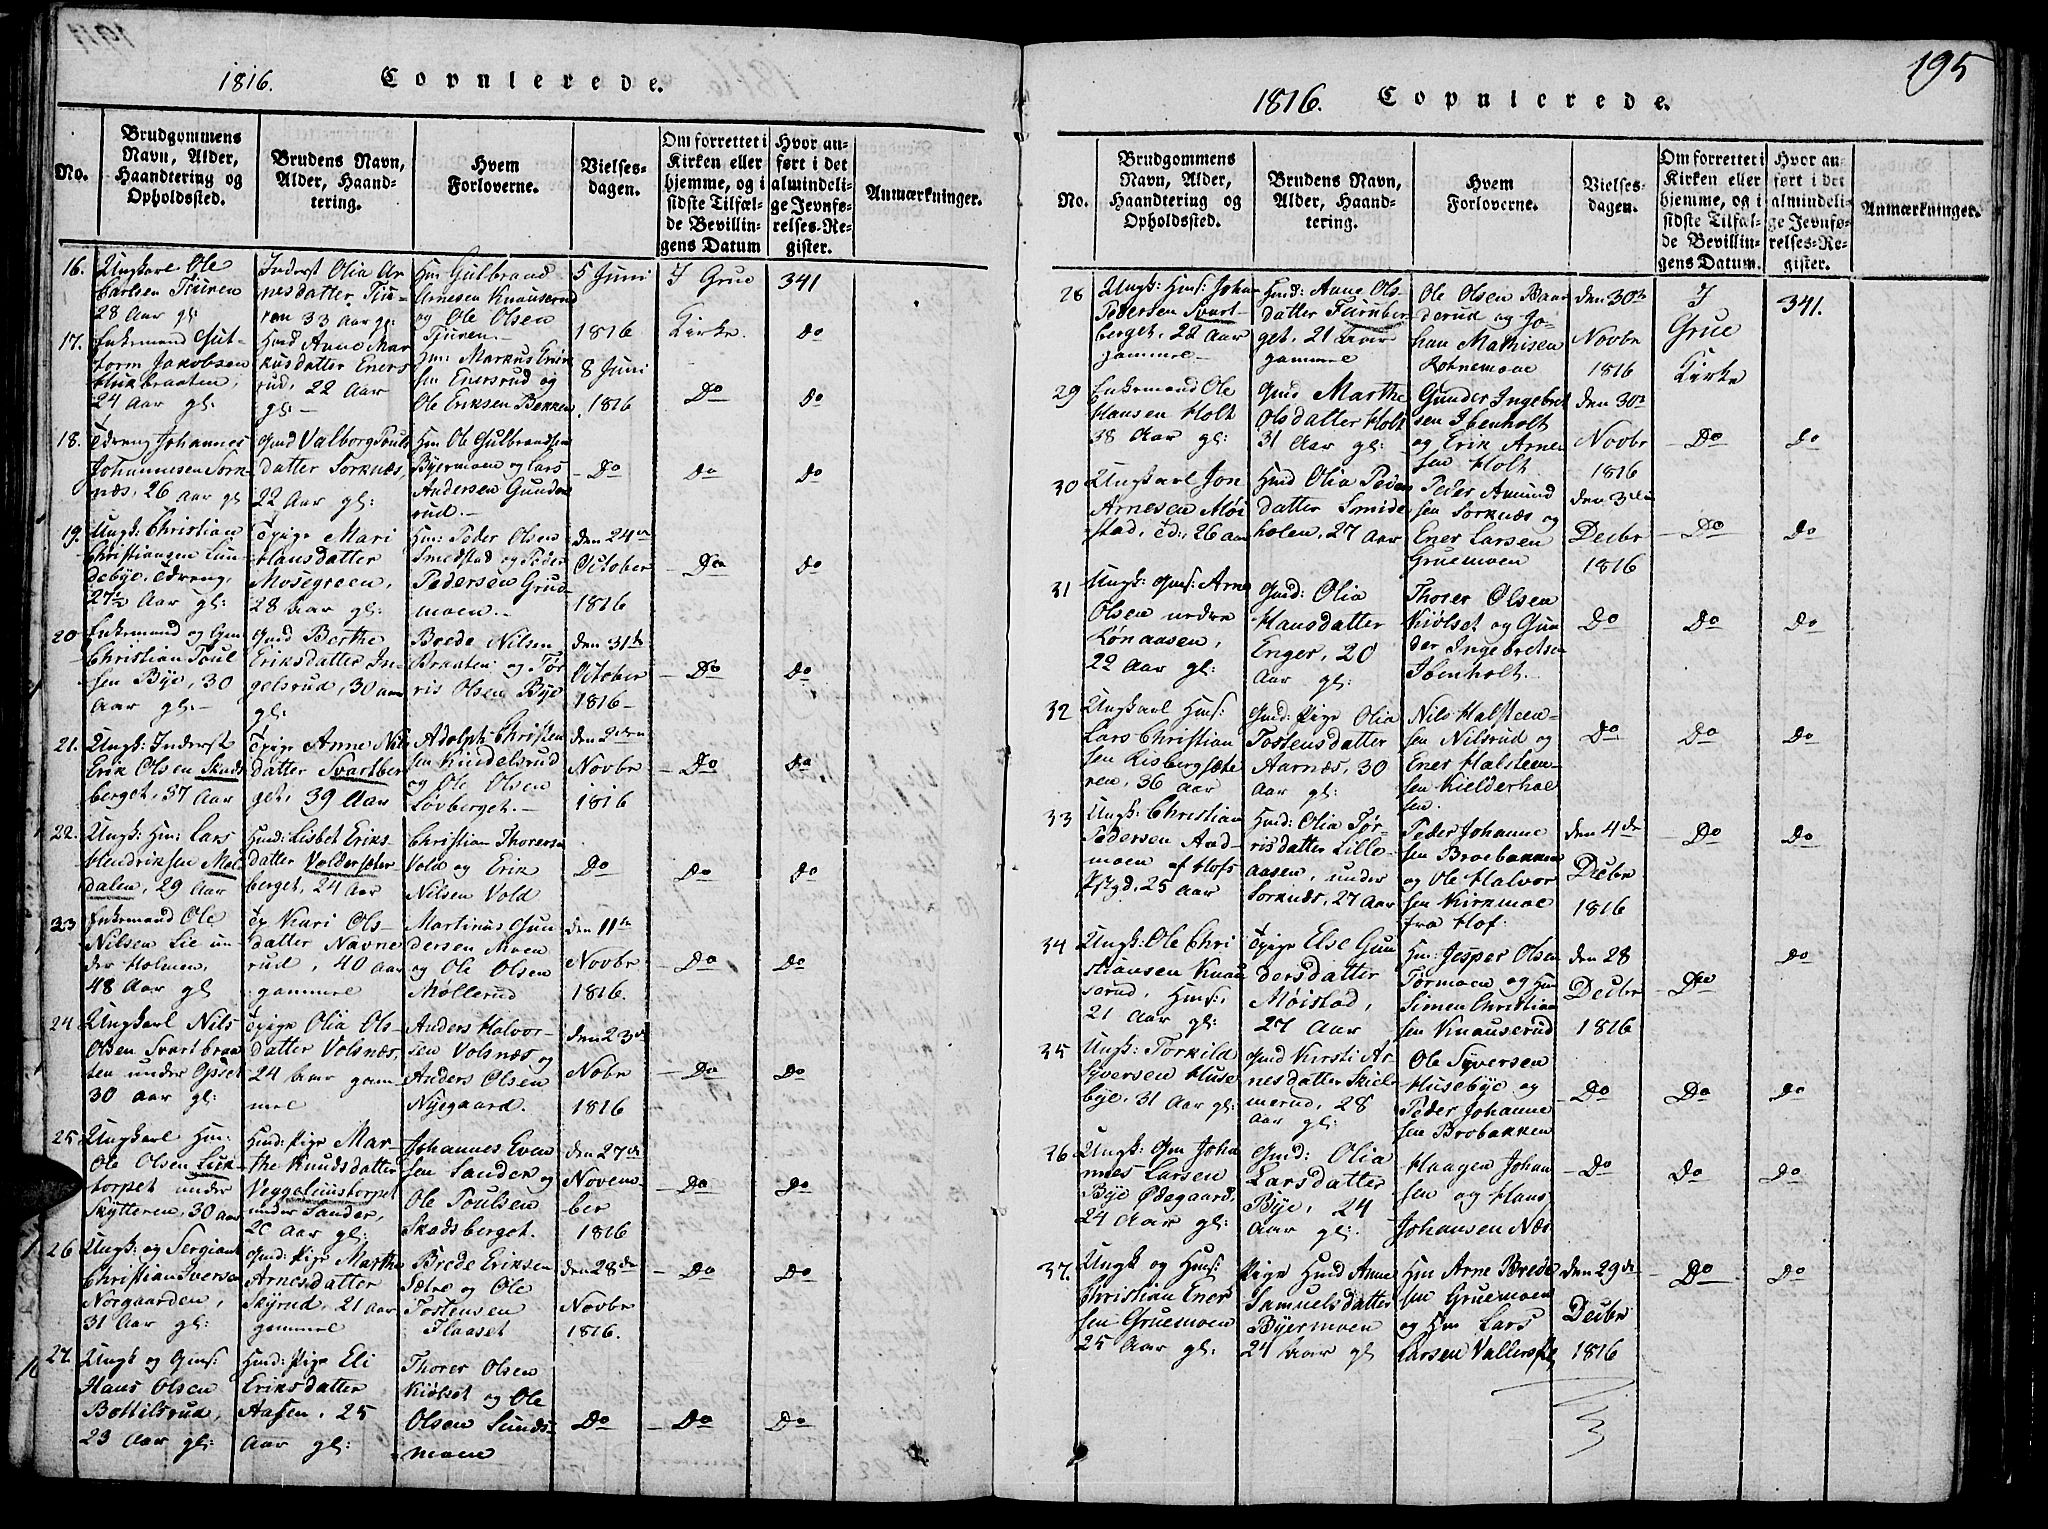 1816. Copulerede.
No.
Brudgommens Navn, Alder, Haandtering og Opholdssted.
Brudens Navn, Alder, Haandtering.
Hvem Forloverne.
Vielsesdagen.
Om forrettet i Kirken eller hjemme, og i sidste Tilfælde Bevillingens Datum
Hvor anført i det almindelige Jevnførelses-Register.
Anmærkninger.
16. Ungkarl Ole
Carlsen Tiuren
28 Aar gl:
Inderst Olia Ar
nesdatter Tiu-
ren 33 Aar gl:
Hm Gulbrand
Arnesen Knauserud
og Ole Olsen
Tiuren.
5 Juni
1816
I Grue
Kirke.
341
17. Enkemand Gut-
torm Jakobsen
24 Aar gl:
Hmd Anne Mar
kusdatter Eners
rud, 22 Aar
gl:
Hm: Markus Erik
sen Enersrud og
Ole Eriksen Bekken
8 Juni
1816
Do
Do
18. Johannes
Johannesen Sork-
næs, 26 aar gl
Gmd Valborg Pouls
datter Sorknæs,
22 Aar gl:
Hm Ole Gulbrandsen
Byermoen og Lars
Andersen Gunde
rud.
Do
Do
Do
19. Ungk: Christian
Christiansen Lun
debye,
27½ Aar gl:
Tpige Mari
Hansdatter
Mosegroen,
28 Aar gl:
Hm: Peder Olsen
Smedstad og Peder
Pedersen Grue
moen.
den 24de
October
1816
Do
Do
20 Enkemand og Gm
Christian Poul
sen Bye, 30
Aar gl:
Gmd Berthe
Eriksdatter In-
gelsrud, 30 aar
gl:
Brede Nilsen
Braaten og Tør
ris Olsen Bye
den 31te
October
1816
Do
Do
21. Ungk: Inderst
Erik Olsen Skads
berget, 37 Aar
Tpige Anne Nils
datter Svartber
get, 39 Aar
Adolph Christen
sen Kindelsrud
og Ole Olsen
Løvberget.
den 2den
Novbr
1816
Do
Do
22. Ungk: Hm: Lars
Hendriksen Mol
dalen, 29 Aar
Hmd: Lisbet Eriks
datter Voldersæter
berget, 24 Aar
Christian Thoresen
Vold og Erik
Nilsen Vold
Do
Do
Do
23 Enkemand Ole
Nilsen Lie un-
der Holmen,
48 Aar gl
Tp Kari Ols
datter Navne
rud, 40 aar
gammel
Martinus Gun
dersen Moen
og Ole Olsen
Møllerud
den 11te
Novbr
1816.
Do
Do
24 Ungkarl Nils
Olsen Svartbraa
ten under Opset
30 aar gl:
Tpige Olia Ols-
datter Volsnæs,
24 Aar gam
mel
Anders Halvor-
sen Volsnæs og
Anders Olsen
Nyegaard.
den 23de
Nobr
1816
Do
Do
25 Ungkarl Hm:
Ole Olsen
torpet under
Skytteren, 30 aar
Hmd: Pige Mar-
the Knudsdatter
under Sander,
20 Aar gl:
Johannes Even
sen Sander og
Ole Poulsen
Skadsberget.
den 27de
Novem
ber
1816
Do
Do
26 Ungk: og Sergiant
Christian Iversen
Norgaarden,
31 Aar gl:
Gmd: Pige Marthe
Arnesdatter
Skyrud, 21 aar
gammel
Brede Eriksen
Sætre og Ole
Tostensen
Flaaset
den 28de
Novbr
1816.
Do
Do
27. Ungk og Gms:
Hans Olsen
Bottilsrud,
23 Aar gl:
Hmd: Pige Eli
Eriksdatter
Aasen, 25
Aar gl:
Thorer Olsen
Kiølset og Ole
Olsen Sunds-
moen
Do
Do
Do
195
1816. Copulerede.
No.
Brudgommens Navn, Alder, Haandtering og Opholdssted.
Brudens Navn, Alder, Haandtering.
Hvem Forloverne.
Vielsesdagen.
Om forrettet i Kirken eller hjemme, og i sidste Tilfælde Bevillingens Datum.
Hvor anført i det almindelige Jevnførelses-Register.
Anmærkninger.
28 Ungk: Hms: Johan
Pedersen Svart-
berget, 22 Aar
gammel
Hmd: Anne Ols-
datter Furuber
get, 21 Aar
gammel
Ole Olsen Baar
derud og Jo-
han Mathisen
den 30te
Novbr
1816
I
Grue
Kirke
341.
29 Enkemand Ole
Hansen Holt
38 Aar gl:
Gmd Marthe
Olsdatter Holt
31 Aar gl:
Gunder Ingebret
sen Ibenholt
og Erik Arne
sen Holt.
den 30te
Novbr
1816
Do
Do
30 Ungkarl Jon
Arnesen Møi
stad, 26 aar
Hmd Olia Peder
datter Smide
holen, 27 Aar
Peder Amund
sen Sorknæs og
Ener Larsen
Gruemoen
den 3die
Decbr
1816
Do
Do
31 Ungk: Gms: Arne
Olsen nedre
Lønaasen,
22 Aar gl:
Gmd: Olia
Hansdatter
Enger, 20
Aar gl:
Thorer Olsen
Kiølset og Gun
der Ingebretsen
Ibenholt.
Do
Do
Do
32 Ungkarl Hms:
Lars Christian
sen Risbergsæte
ren, 36 aar
Gmd: Pige Olia
Tostensdatter
Aarnæs, 30
aar gl:
Nils Halsteen-
sen Nilsrud og
Ener Halsteen-
sen
Do
Do
Do
33 Ungk: Christian
Pedersen And-
moen af Hofs
Pstgd, 25 aar
Hmd: Olia Tør-
risdatter Lille
aasen, under
Sorknæs, 27 Aar
Peder Johanne
sen Broebakken
og Ole Halvor
sen Kirkmoe
fra Hof:
den 4de
Decbr
1816
Do
Do
34 Ungk: Ole Chri
stiansen Knau
serud, Hms:
21 Aar gl:
Tpige Else Gun
dersdatter
Møistad,
27 Aar
Hm: Jesper Olsen
Tørmoen og Hm
Simen Christian
sen Knauserud
den 28
Decbr
1816
Do
Do
35 Ungk: Torkild
Syversen Huse
bye, 31 Aar gl:
Gmd Kirsti Ar
nesdatter Skiel
merud, 28
aar gl:
Ole Syversen
Husebye og
Peder Johanne
sen Brobakken
Do
Do
Do
36 Ungk: Gm Joha
nnes Larsen
Bye Ødegaard,
24 Aar gl:
Gmd: Olia
Larsdatter
Bye, 24
Aar gl:
Haagen Johan
sen og Hans
Johansen Næs
Do
Do
Do
37. Ungk og Hms:
Christian Ener
sen Gruemoen
25 Aar gl:
Pige Hmd Anne
Samuelsdatter
Byermoen
24 Aar gl
Hm Arne Brede
sen Gruemoen
og Hm Lars
Larsen
den 29de
Decbr
1816
Do
Do